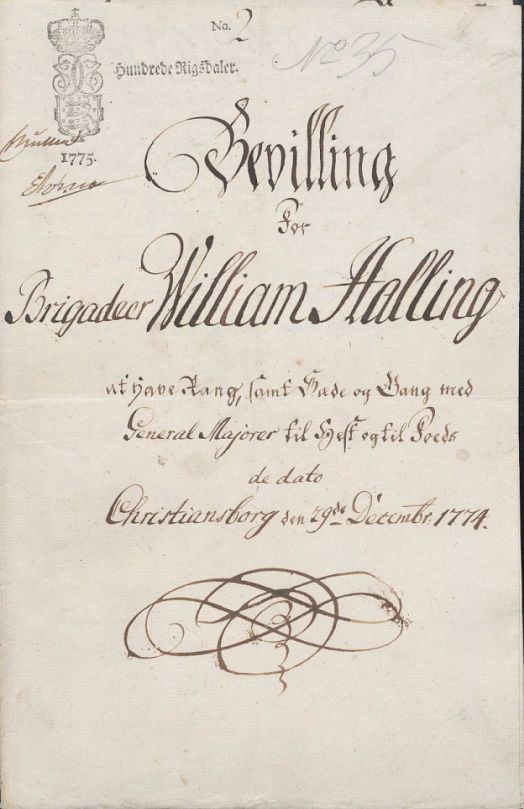 No. 2
No 35
Hundrede Rigsdaler.
1775.
Bevilling
For
Brigadeer William Halling
at have Rang, samt Sæde og Gang med
General Majorer til Hest og til Foeds
de dato
Christiansborg den 29de Decembr. 1774.